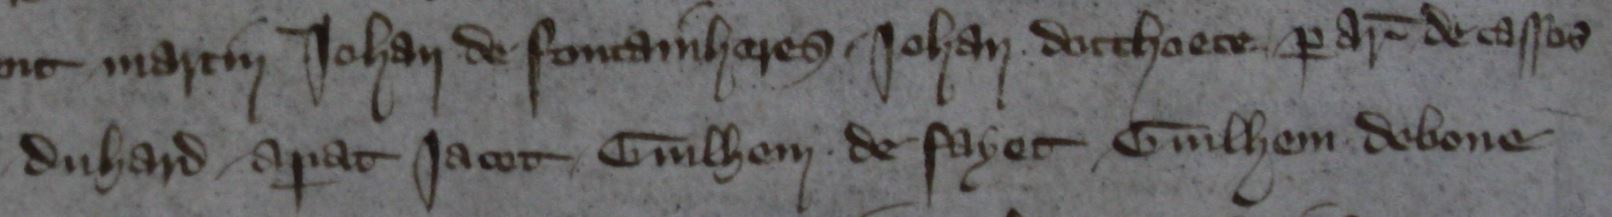 nt martin Johan de fontainheres Johan dotthoete p ar de cassos
duhard apat Jacet Guilhem de fayet Guilhem debone